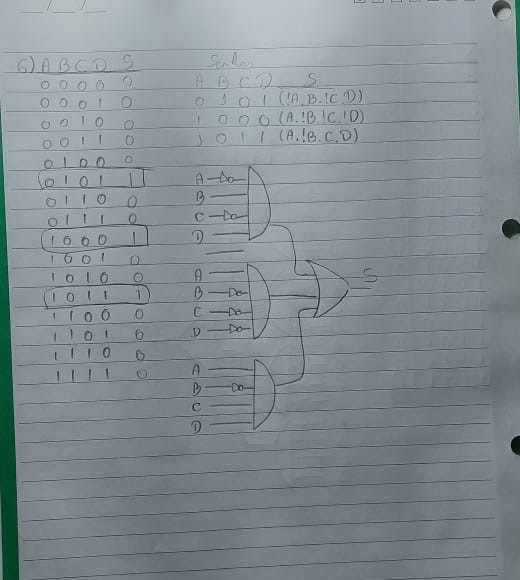 6) A B C D S
0 0 0 0 0
0 0 0 1 0
0 0 1 0 0
0 0 1 1 0
0 1 0 0 0
0 1 0 1 1
0 1 1 0 0
0 1 1 1 0
1 0 0 0 1
1 0 0 1 0
1 0 1 0 0
1 0 1 1 1
1 1 0 0 0
1 1 0 1 0
1 1 1 0 0
1 1 1 1 0
Senhas
A B C D S
0 1 0 1 (!A.B.!C.D)
1 0 0 0 (A.!B.!C.!D)
1 0 1 1 (A.!B.C.D)
A
B
C
D
A
B
C
D
A
B
C
D
S